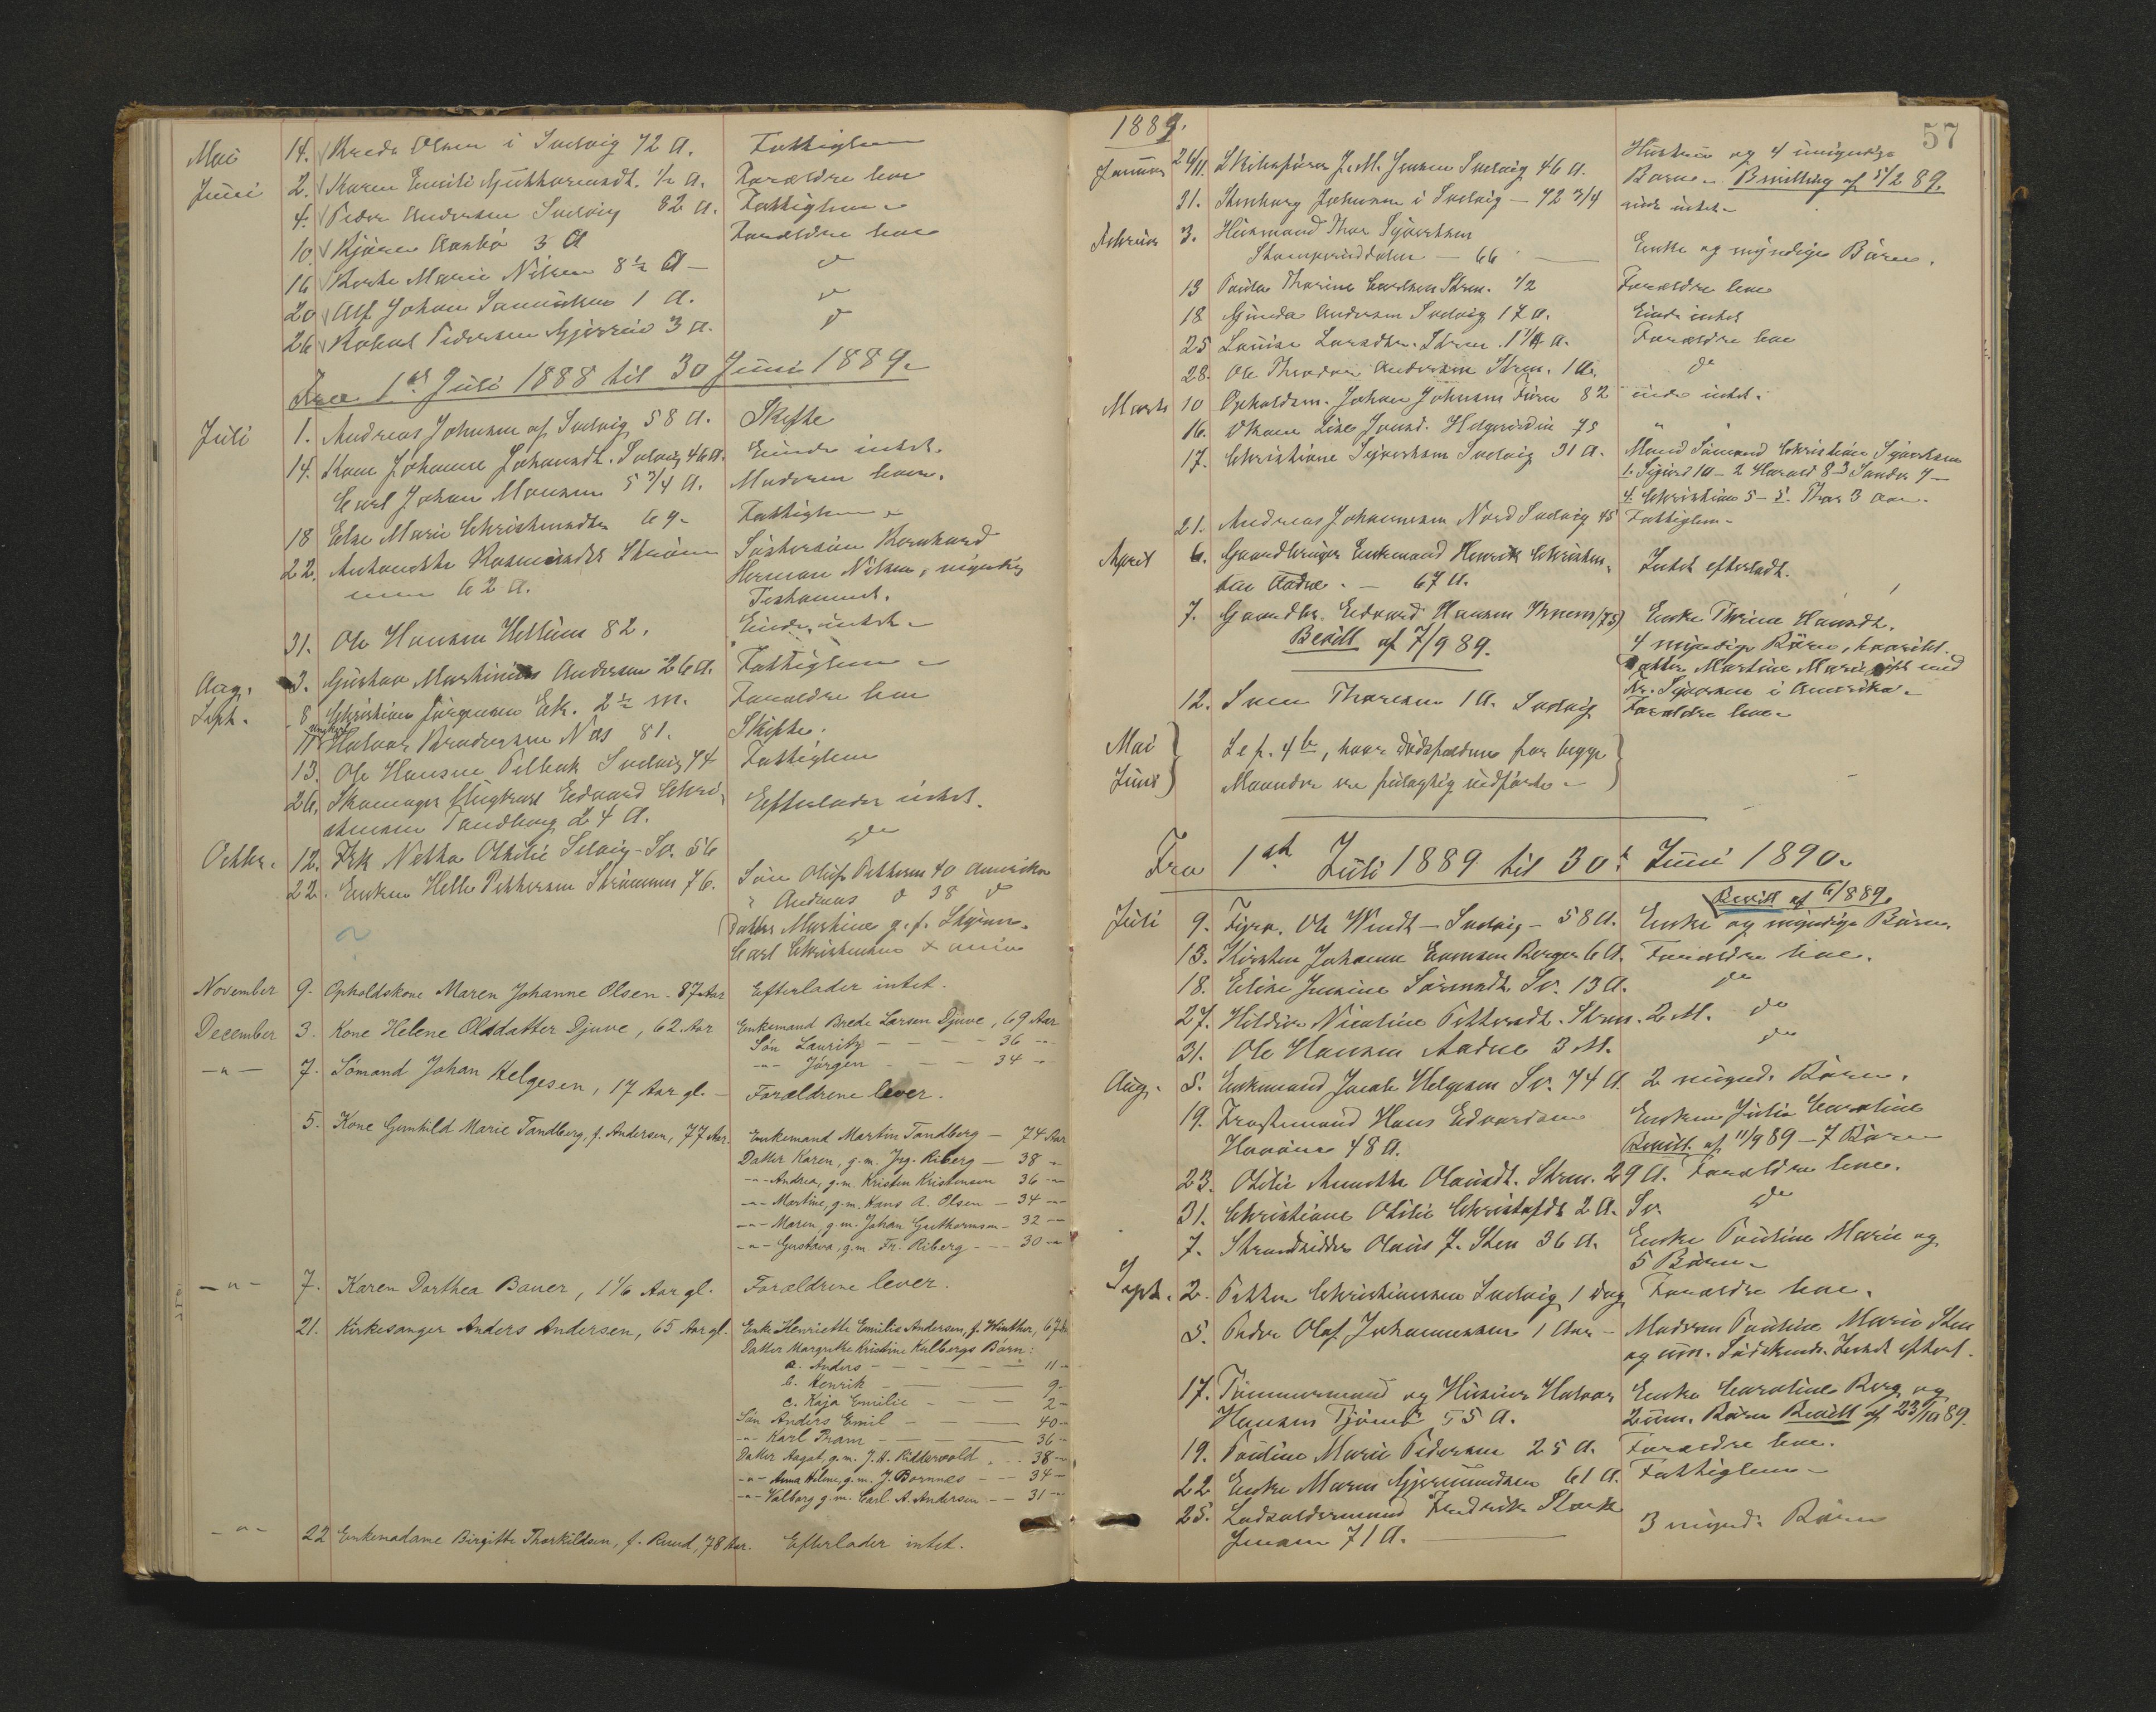 Mai 14. Brede Olsen i Svelvig 72 A. Fattiglem
Juni 2. Karen Emilie Guttormsdt. ½ A. Forældre leve
4. Peder Andersen Svelvig 82 A. Fattiglem
10. 3 A Forældre leve
16 Marie Nilsen 8½ A – do
20 Alf Johan 1 A. do
26 Pedersen 3 A. do
Fra 1st Juli 1888 til 30 Juni 1889.
Juli 1. Andreas Johnsen af Svelvig 58 A. Skifte
14. Kone Johanne Johansdt. Svelvig 46 A. Eiende intet.
Carl Johan Monsen 5 3/4 A. Moderen lever.
18 Else Marie Christensdtr 69 Fattiglem
22. Rasmusdtr Strøm- Søstersøn Bernhard
men 62 A. Herman Nilsen, myndig
Testament.
31. Ole Hansen Hellum 82. Eiede intet
Aug. 3. Gustav Martinius Andersen 26 A. Fattiglem
Sept. 8 Christian Jørgensen Eek. 2½ M. Forældre leve
11 Ungkarl Halvor Brodersen Næs 81. Skifte.
13. Ole Hansen Svelvig 74 Fattiglem
26. Skomager Ungkarl Edvard Chri-
stensen Tandberg 24 A. Efterlader intet.
Octbr. 12. Frk Netha Othilie Solvig – Sv. 56 do
22. Enken Helle Pettersen Strømmen 76. Søn Oluf Pettersen 40 Amerika
" Andreas d 38 d
Datter Martine g. f.
Carl Christensen
November 9. Opholdskone Maren Johanne Olsen. 87 Aar Efterlader intet.
December 3. Kone Helene Olsdatter Djuve, 62 Aar Enkemand Brede Larsen Djuve, 69 Aar
Søn Lauritz – – – – 36 –"–
–"– Jörgen – – – 34 –"–
–"– 7. Sömand Johan Helgesen, 17 Aar gl. – Forældrene lever.
5. Kone Gunhild Marie Tandberg, f. Andersen, 77 Aar. Enkemand Martin Tandberg – 74 Aar
Datter Karen, g.m. Jrg. Riberg – 38 –
–"– Andrea, g.m. Kristen Kristensen 36 –"–
–"– Martine, g.m. Hans A. Olsen – 34 –"–
–"– Maren, g.m. Johan Guthormsen – 32 –"–
–"– Gustava, g.m. Fr. Riberg – – – 30 –"–
–"– 7. Karen Dorthea Bauer, 1 1/6 Aar gl. Forældrene lever.
21. Kirkesanger Anders Andersen, 65 Aar gl. Enke Henriette Emilie Andersen, f. Winther, 67 Aar
Datter Margrethe Kristine Kulbergs Børn:
a. Anders – – – – – – 11 –
b. Henrik – – – 9 –
c. Kaja Emilie – – – 2 –
Søn Anders Emil – – – 40 –
–"– Karl Bram – – – 36 –
Datter Aagot, g.m. J. H. Riddervold – 38 –
–"– Anna Helene, g.m. J. Bornnes – – – 34 –
–"– Valborg g.m. Carl A. Andersen – – 31 –
–"– 22 Enkemadame Birgitte Thorkildsen, f. Ruud, 78 Aar. Efterlader intet.
57
1889.
Januar 24/11. Skibsfører J. M. Jensen Svelvig 46 A. Hustru og 4 umyndige
Børn. Bevilling af 5/2 89.
31. Johnsen i Svelvig – 72 3/4 eiede intet.
Februar 3. Huusmand Thor Syvertsen
– 66 – Enke og myndige Børn.
13 Thorine Carlsen Strm. ½ Forældre leve
18 Gunda Andersen Svelvig 17 A. Eiede intet
25 Louise Larsdtr. Strm. 1¼ A. Forældre leve
28. Ole Theodor Andersen Strm. 1 A. do
Marts 10 Opholdsm. Johan Johnsen 82 eiede intet.
16. Line 75 "
17. Christiane Syvertsen Svelvig 31 A. Mand Sømand Christian Syvertsen
1. Sigurd 10 – 2 Harald 8 3 Sander 7 –
4. Christian 5 – 5. Thor 3 Aar.
21. Andreas Johannesen Nord Svelvig 45 Fattiglem.
April 6. Gaardbruger Enkemand Henrik Christen-
sen Aadne. – 67 A. Intet efterladt.
7. Gaardbr. Edvard Hansen (73) Enke Thrine Hansdt.
Bevill af 7/9 89. 4 myndige Børn, hvoribl.
Datter Martine Marie gift med
Fr. Syversen i Amerika.
12. Sven Thoresen 1 A. Svelvig Forældre leve.
Mai } Se p. 4 b, hvor dødsfaldene for begge
Juni } Maaneder ere feilagtig indførte.
Fra 1st Juli 1889 til 30t Juni 1890.
Bevill af 6/8 89.
Juli 9. Ole Windt – Svelvig – 58 A. Enke og myndige Børn.
13. Kirsten Johanne Evensen Berger 6 A. Forældre leve.
18. Elise Josine Sørensdt. Sv. 13 A. do
27. Nicoline Pettersdt. Strm. 2 M. do
31. Ole Hansen Aadne 3 M. do
Aug. 5. Enkemand Jacob Helgesen Sv. 74 A. 2 mynd. Børn.
19. Hans Edvardsen Enken Julie Caroline
48 A. Bevill. af 11/9 89 – 7 Børn
23. Otilie Annette Olausdt. Strm. 29 A. Forældre leve.
31. Christiane Otilie Christofsdt. 2 A. Sv. do
7. Strandsidder Olaus J. Sten 36 A. Enke Pauline Marie og
5 Børn.
Sept. 2. Petter Christiansen Svelvig 1 Dag Forældre leve.
5. Peder Olaf Johannessen 1 Aar – Moderen Pauline Marie Sten
og um. Sødskende. Intet efterl.
17. Tømmermand og Huseier Halvor Enke Caroline Berg og
Hansen 55 A. 2 um. Børn Bevill af 23/10 89.
19. Pauline Marie Pedersen 25 A. Forældre leve.
22 Enke Maren Gjermundsen 61 A. Fattiglem –
25. Lodsoldermand Fredrik Stark
Jensen 71 A. 3 mynd. Børn